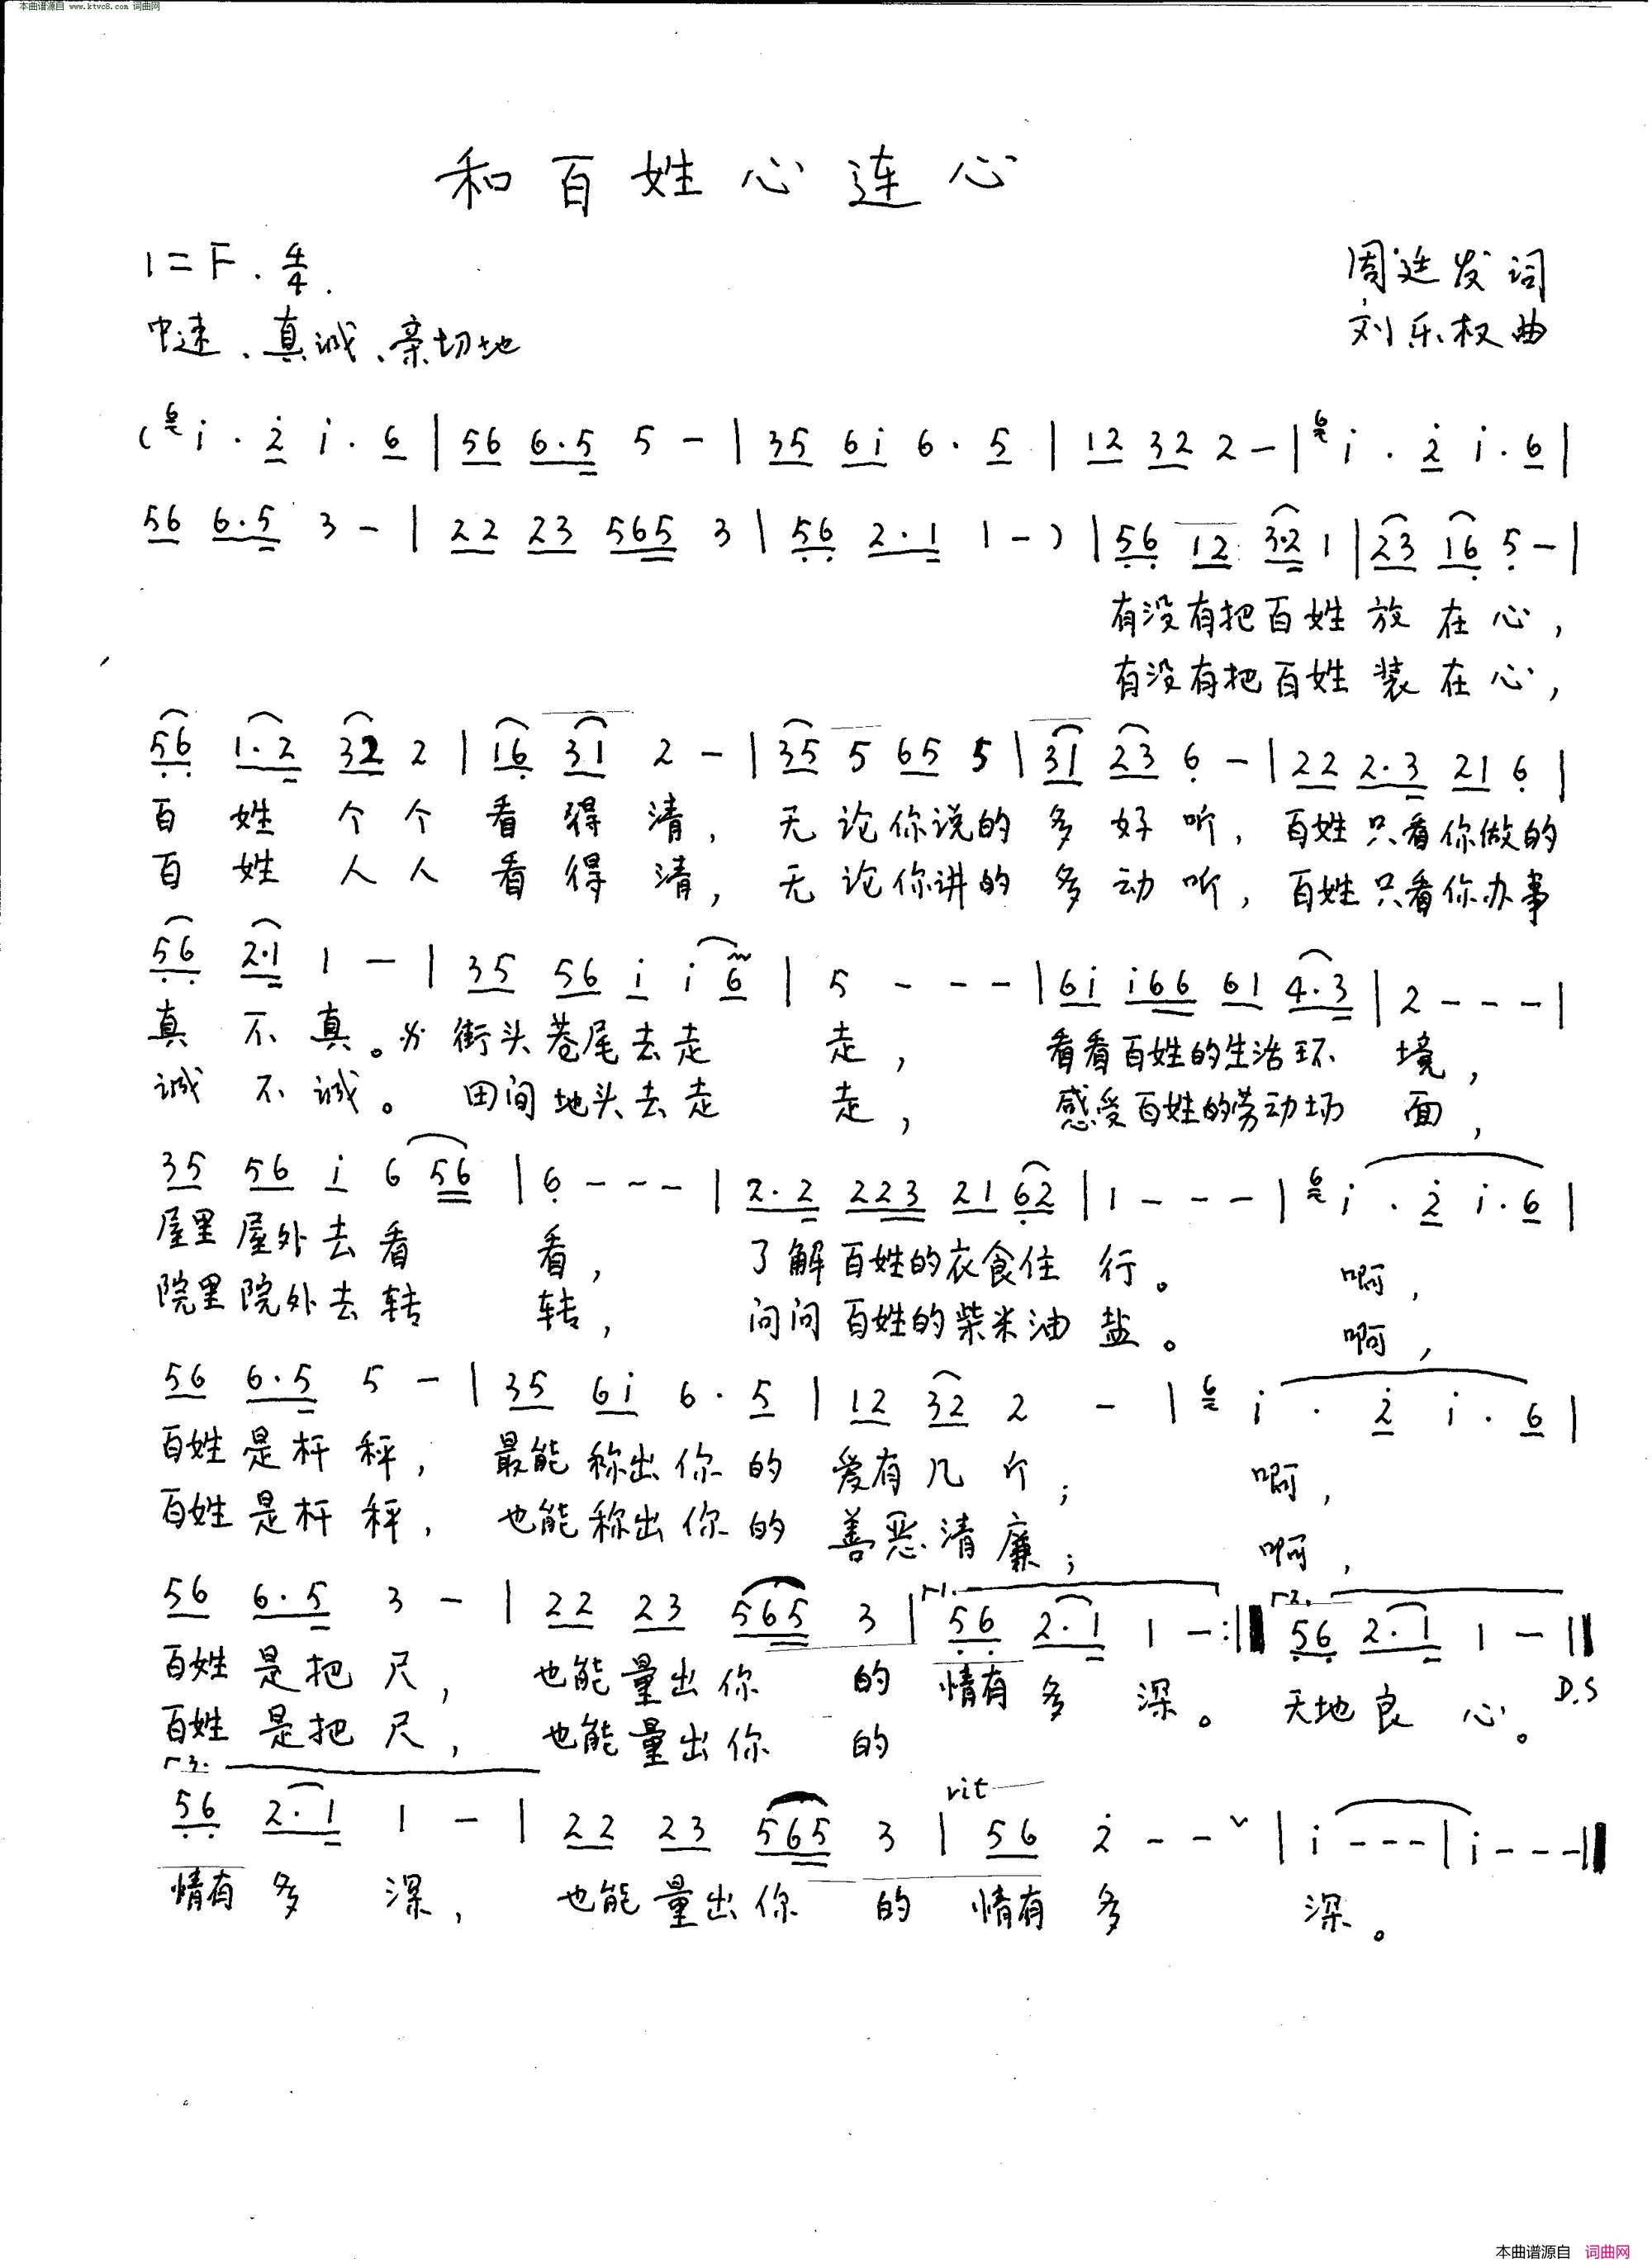 本曲谱源自 www.ktvc8.com 词曲网
和百姓心连心
1=F . 4/4 .
周廷发词
中速、真诚、亲切地
刘乐权曲
( 6 i · 2 i · 6 | 56 6·5 5 - | 35 6i 6 · 5 | 12 32 2 - | 6 i · 2 i · 6 |
56 6·5 3 - | 22 23 565 3 | 56 2·1 1 - ) | 56 12 3·2 1 | 23 16 5 - |
有没有把百姓放在心,
有没有把百姓装在心,
56 1·2 32 2 | 16 31 2 - | 35 5 65 5 | 31 23 6 - | 22 2·3 21 6 |
百姓个个看得清, 无论你说的多好听, 百姓只看你做的
百姓人人看得清, 无论你讲的多动听, 百姓只看你办事
56 2·1 1 - | 35 56 i i 6 | 5 - - - | 6i i66 61 4·3 | 2 - - - |
真不真。 街头巷尾去走走, 看看百姓的生活环境,
诚不诚。 田间地头去走走, 感受百姓的劳动场面,
35 56 i 6 56 | 6 - - - | 2·2 223 21 62 | 1 - - - | 6 i · 2 i · 6 |
屋里屋外去看看, 了解百姓的衣食住行。 啊,
院里院外去转转, 问问百姓的柴米油盐。 啊,
56 6·5 5 - | 35 6i 6 · 5 | 12 32 2 - | 6 i · 2 i · 6 |
百姓是杆秤, 最能称出你的爱有几斤; 啊,
百姓是杆秤, 也能称出你的善恶清廉; 啊,
56 6·5 3 - | 22 23 565 3 | 1. 56 2·1 1 - :| 2. 56 2·1 1 - ||
百姓是把尺, 也能量出你的情有多深。 天地良心。 D.S
百姓是把尺, 也能量出你的
3.
rit
56 2·1 1 - | 22 23 565 3 | 56 2 - - | i - - - | i - - - |
情有多深, 也能量出你的情有多深。
本曲谱源自 词曲网